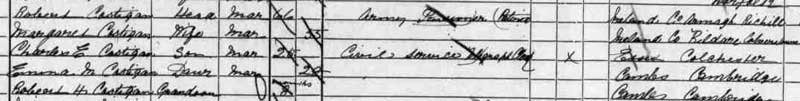 Robert Castigan Head Mar 66 Army Pensioner (Retired Ireland Co Armagh Richill
Margaret Castigan Wife Mar 55 Ireland Co Kildare
Charles E Castigan Son Mar 25 Civil Service Telegraph Clerk x Essex Colchester
Emma M Castigan Daur Mar 25 Cambs Cambridge
Robert H Castigan Grandson 8 months Cambs Cambridge